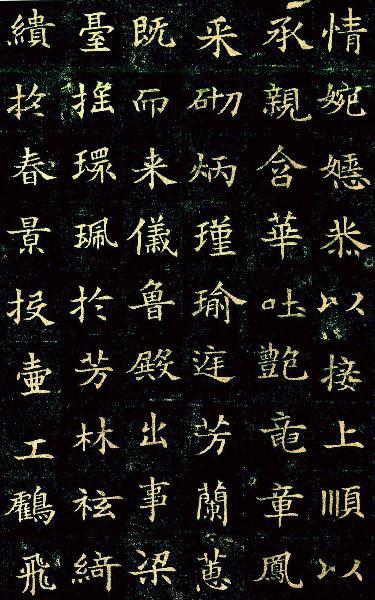 情婉嫕恭以接上順以
承親含華吐艷竜章鳳
采砌炳瑾瑜庭芳蘭蕙
既而来儀魯殿出事梁
臺搖環珮於芳林袨綺
繢於春景投壺工鶴飛